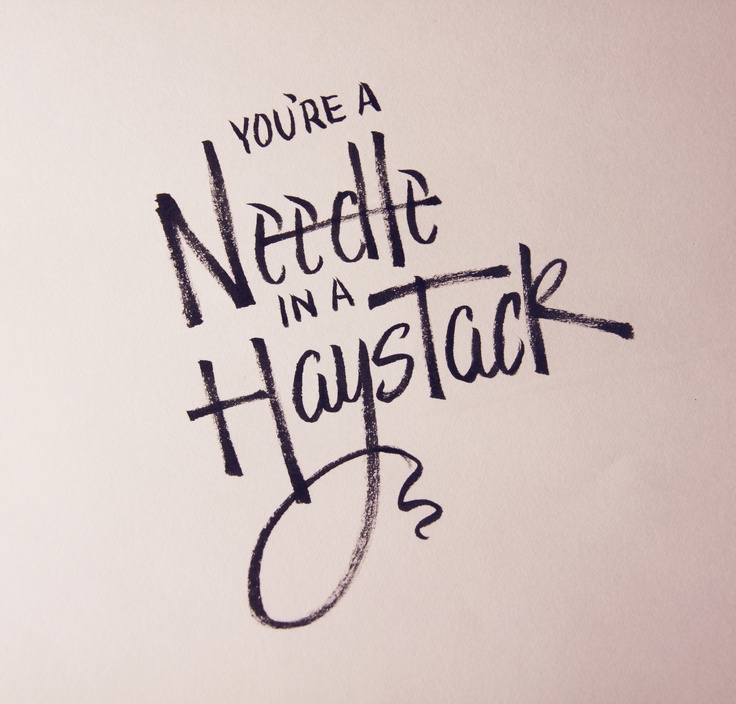 YOU'RE A
Needle
IN A
HaysTack